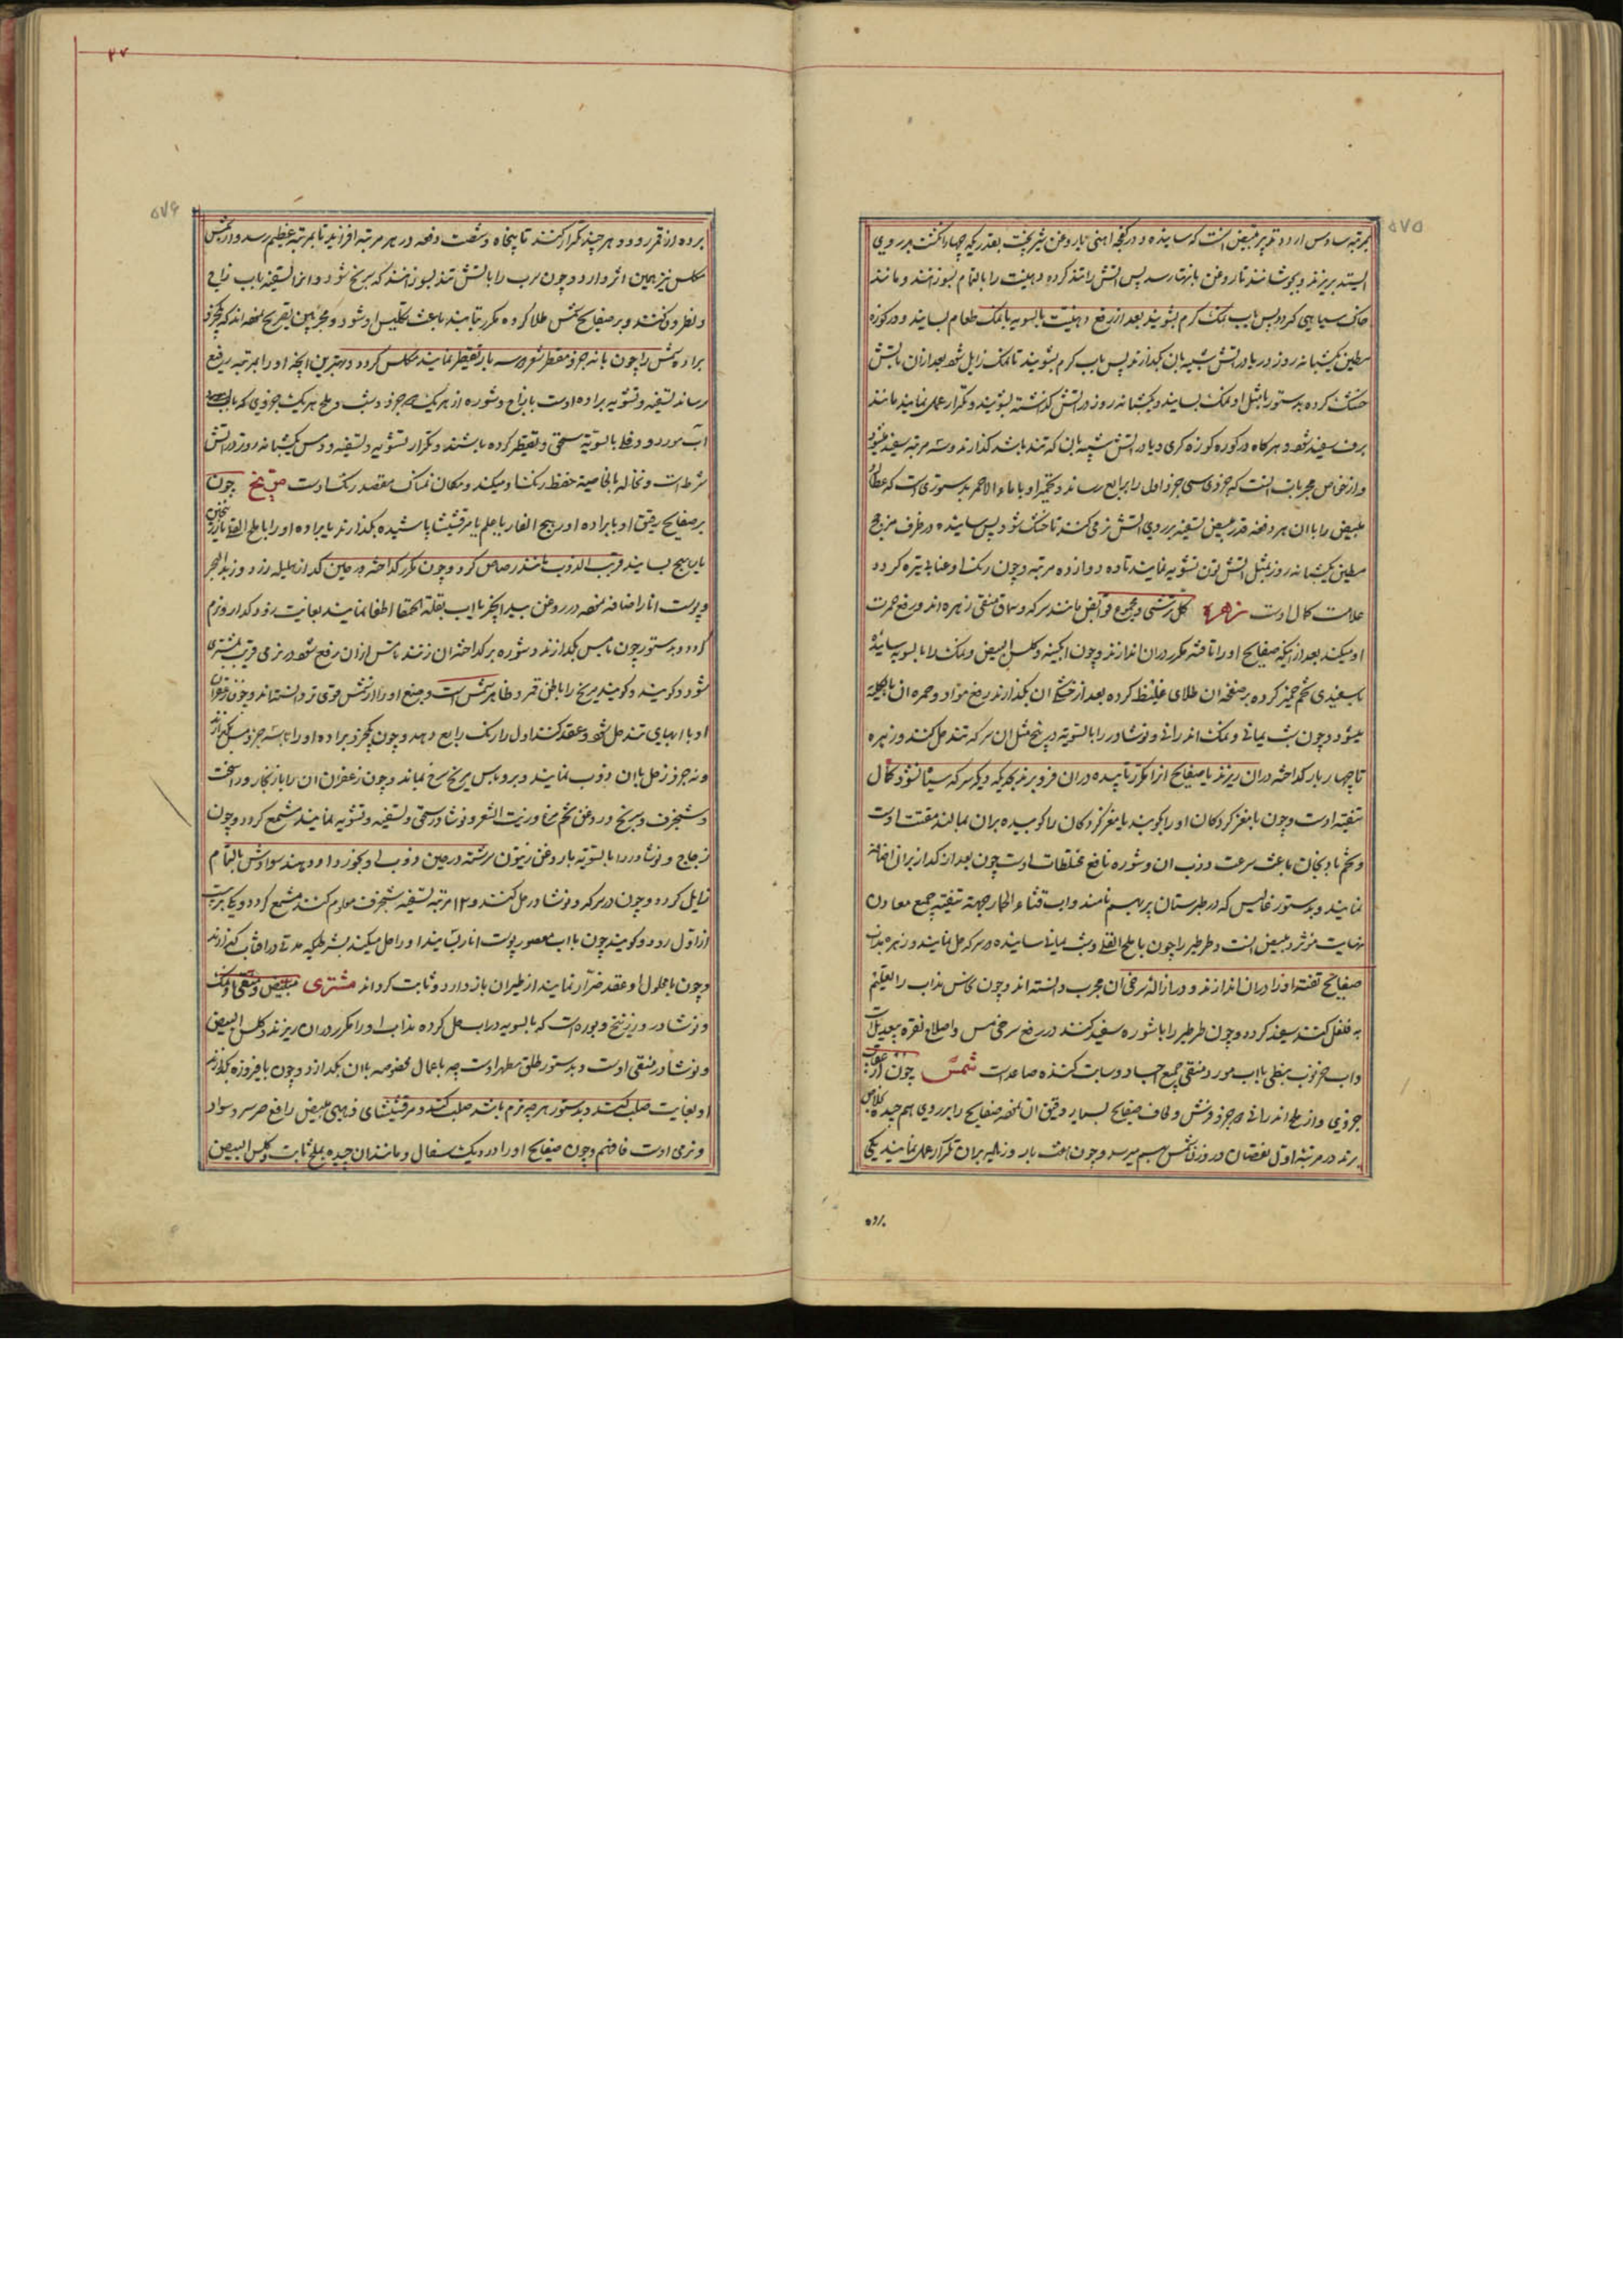 ۵۷۵
بمرتبه سادس آرد و تدبیر مبیض انست که ساینده و در کفچه آهنی با روغن شیر پخت بقدریکه چهار انگشت بر روی
ایستد بریزند و بجوشانند تا روغن بانتها رسد پس آتش را تند کرده دهنیت را بالتمام بسوزانند و مانند
خاک سیاهی کردد پس باب نمک کرم بشویند بعد از رفع دهنیت بالسویه با نمک طعام بسایند و در کوزه
مطین یکشبانه روز در آتش شیشه بان کذارند پس باب کرم بشویند تا نمک زایل شود بعد از ان باتش
خشک کرده بدستور با مثل او نمک بسایند و یکشبانه روز در آتش کذاشته بشویند و تکرار عمل نمایند مانند
برف سفید شود و هرکاه در کوره کوزه کری و یا در آتش شیشه بان که تند باشد کذارند و سه مرتبه سفید میشود
و از خواص مجربات انست که جزوی سی جزو اول را برابع رساند و تخمیر او با ماء الاحمر بدستوری است که عطارد
مبیض را با ان هر دفعه قدر مبیض تسقیه بر روی آتش نرمی کنند تا خشک شود پس ساینده در ظرف مزجج
مطین یکشبانه روز بمثل آتش تون تشویه نمایند تا ده دوازده مرتبه و چون رنک او عنابی تیره کردد
علامت کمال اوست زهره کل سرشوی و مجموع قوابض مانند سرکه و سماق منقی زهره اند و رفع حمرت
او میکند بعد از آنکه صفایح او را تافته مکرر در ان اندازند و چون ابکینه و کلس البیض و نمک را بالسویه سائیده
با سفیدی تخم خمیر کرده بر صفحه ان طلای غلیظ کرده بعد از خشکی ان بکدازند رفع سواد و حمره ان بالکلیه
میشود و چون شب یمانی و نمک اندرانی و نوشادر را بالسویه در پنج مثل ان سرکه تند حل کنند و زهره
تا چهار بار کداخته در ان ریزند یا صفایح انرا مکرر تابیده در ان فرو برند بحدیکه دیکر سرکه سیاه نشود کمال
تنقیه اوست و چون با مغز کردکان او را بکوبند یا مغز کردکان را کوبیده بران بمالند مفتت اوست
و تخم بادنجان باعث سرعت ذوب ان و شوره نافع مخلطات اوست چون بعد از کداز بران اضافه
نمایند و بدستور غالیس که در طبرستان پرپهیم نامند و اب قثاء الحمار جهة تنقیه جمیع معادن
بنهایت مؤثر و مبیض انست و طرطیر را چون با ملح القلی و شب یمانی ساینده در سرکه حل نمایند و زهره مذاب
صفایح تفته او را در ان اندازند و در ازاله سرخی ان مجرب دانسته اند و چون نحاس مذاب را بتعلیم
به فلفل کنند سفید کردد و چون طرطیر را با شوره سفید کنند در رفع سرخی مس و اصلاح نقره بیعدیل است
و اب خرنوب نبطی با اب مورد منقی جمیع اجساد و ثابت کننده صاعد است شمس چون از عقاب
جزوی و از ملح اندرانی جزو فرش و لحاف صفایح بسیار رقیق ان نموده صفایح را بر روی هم چیده خلاص
برند در مرتبه اول نقصان در وزنش بهم میرسد و چون هفت بار و زیاده بران تکرار عمل نمایند یکی
برده
۵۷۶
برده از قمر رود و هر چند تکرار کنند تا پنجاه و شصت دفعه در هر مرتبه افزاید تا بمرتبه عظیم رسد و از شمس
مکلس نیز همین اثر دارد و چون سرب را باتش تند بسوزانند که سرنج شود و انرا تسقیه باب زاج
و نطرون کنند و بر صفایح شمس طلا کرده مکرر تابند باعث تکلیس او شود و مجربین تصریح نموده اند که یکجزو
براده شمس را چون با نه جزو مقطر شعر سه بار تقطیر نمایند مکلس کردد و بهترین آنچه او را بمرتبه رفیع
رساند تسقیه و تشویه براده اوست با زاج و شوره از هر یک جزو و شب و ملح هر یک جزوی که با
آب مورد و دفلا بالسویه سحق و تقطیر کرده باشند و تکرار تشویه و تسقیه و دس یکشبانه روز در آتش
شرط است و نخاله بالخاصیة حفظ رنک او میکند و مکان نمناک مفسد رنک اوست مریخ چون
بر صفایح رقیق او یا براده او رهج الفار یا علم یا مرقشیثا پاشیده بکدازند یا براده او را با ملح القلی یا زرنیخ
یا رهج بسایند قریب الذوب مانند رصاص کردد و چون مکرر کداخته در حین کداز هلیله زرد و زبد البحر
و پوست انار اضافه نموده در روغن بید انجیر یا اب بقلة الحمقا اطفا نمایند بغایت زود کداز و نرم
کردد و بدستور چون با مس بکدازند و شوره بر کداخته ان زنند تا مس از ان رفع شود در نرمی قریب بمشتری
شود و کویند و کویند مریخ را باطن قمر و ظاهر شمس است و صنع او را از شمس قوی تر دانسته اند و چون زعفران
او با ابهای تند حل شود و عقد کنند اول را رنک رابع دهد و چون یکجزو براده او را با سه جزو مس بکدازند
و نه جزو زحل با ان ذوب نمایند و بروباس برند مریخ سرخ بماند و چون زعفران ان را با زنجار و راسخت
و شنجرف و مریخ در روغن تخم مرغ و زیت الشعر و نوشادر سحق و تسقیه و تشویه نمایند مشمع کردد و چون
زجاج و نوشادر را بالسویه با روغن زیتون سرشته در حین ذوب او بخورد او دهند سوادش بالتمام
زایل کردد و چون در سرکه و نوشادر حل کنند و ۱۲ مرتبه تسقیه شنجرف معلوم کنند مشمع کردد و بکبریت
از اول رود و کویند چون با اب معصور پوست انار بسایند او را حل میکند بشرطیکه مدتی در افتاب کذارند
و چون با محلول او عقد فرار نمایند از طیران باز دارد و ثابت کرداند مشتری مبیض و منقی او نمک
و نوشادر و زرنیخ و بوره است که بالسویه در اب حل کرده مذاب او را مکرر در ان ریزند و کلس البیض
و نوشادر منقی اوست و بدستور طلق مطهر اوست چه باعمال مخصوصه با ان بکدازد و چون با فیروزه بکدازند
او بغایت صلب کند و بدستور هر چه نرم باشد صلب کند و مرقشیثای ذهبی مبیض و رافع صریر و سواد
و نرمی اوست فافهم و چون صفایح او را در دیک سفال و مانند ان چیده بملح ثابت و کلس البیض